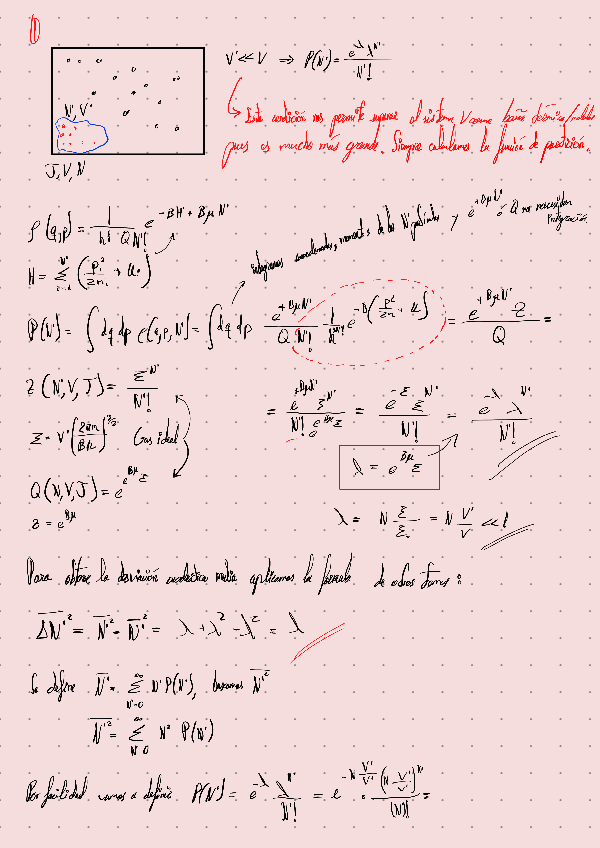 1
V' << V ⇒ P(N') = e^-λ λ^N' / N'!
Esta condición nos permite suponer el sistema V como baño térmico/
pues es mucho más grande. Siempre calculamos la función de partición.
N', V'
T, V, N
ρ(q,p) = 1/(h Q N'!) e^(-βH + βμN')
H = Σ (p_i²/2m + U)
integramos coordenadas, momentos de las N' partículas y e^(+βμN') Q no necesitan integración
P(N') = ∫dq dp ρ(q,p,N') = ∫dq dp e^(+βμN') / (Q N'!) 1/h e^(-β(p²/2m + U)) = e^(+βμN') Z / Q =
Z(N',V,T) = Ξ^N' / N'!
Gas ideal
= e^(+βμN') Ξ^N' / (N'! e^(e^(βμ) Ξ)) = e^-Ξ Ξ^N' / N'! = e^-λ λ^N' / N'!
Q(N,V,T) = e^(e^(βμ) Ξ)
λ = e^(βμ) Ξ
z = e^(βμ)
λ = N Ξ/Ξ = N V'/V << 1
Para obtener la desviación cuadrática media aplicamos la fórmula de otras formas:
ΔN'² = N'² - N'² = λ + λ² - λ² = λ
Se define N' = Σ N' P(N'), buscamos N'²
N'² = Σ N² P(N')
Por facilidad vamos a definir P(N') = e^-λ λ^N' / N'! = e^(-N V'/V) · (N · V'/V)^N' / (N)! =